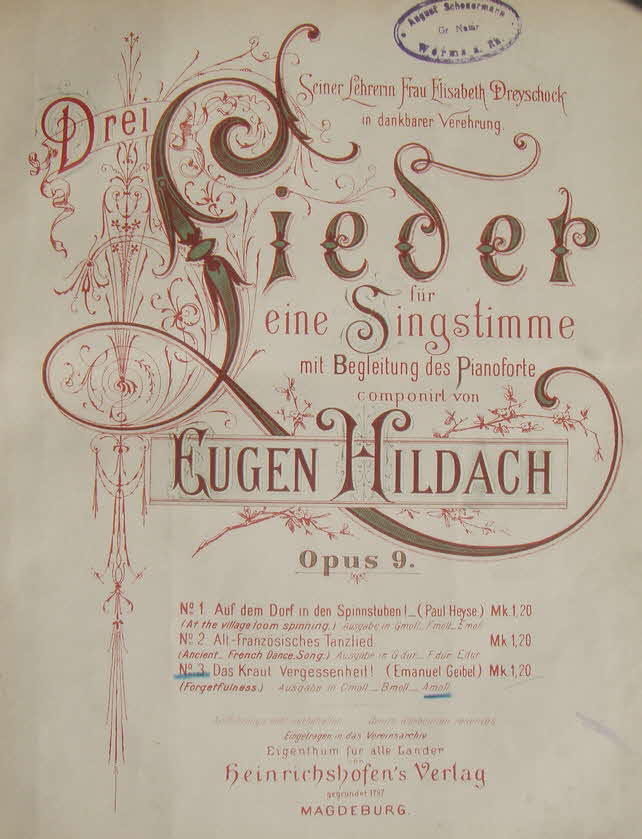 August Scheuermann
Gr Natur
Worms a. Rh.
Seiner Lehrerin Frau Elisabeth Dreyschock
in dankbarer Verehrung.
Drei
Lieder
für
eine Singstimme
mit Begleitung des Pianoforte
componirt von
EUGEN HILDACH
Opus 9.
No 1. Auf dem Dorf in den Spinnstuben! _ (Paul Heyse.) Mk. 1,20
(At the village loom spinning.) Ausgabe in Gmoll _ Fmoll _ Emoll
No 2. Alt-Französisches Tanzlied. Mk. 1,20
(Ancient _ French Dance Song.) Ausgabe in G dur _ F dur _ E dur
No 3. Das Kraut Vergessenheit! (Emanuel Geibel) Mk. 1,20
(Forgetfulness.) Ausgabe in Cmoll _ Bmoll _ Amoll
Eingetragen in das Vereinsarchiv
Eigenthum für alle Länder
von
Heinrichshofen's Verlag
gegründet 1797
MAGDEBURG.